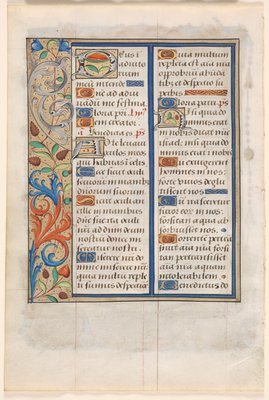 Deus i
adiuto
rium
meū intende
Dne ad adiu
vādū me festina.
Gloria pri. hymꝰ
Memē creator.
Beneduca es. ps
Ad te levavi
oculos meos
qui habitas ī celis
Ecce sicut oculi
servorum in manibꝰ
dominorum suorum
Sicut oculi an
cille in manibus
dn̄e sue ita oculi
nostri ad dn̄m deum
nostrū donec mi
sereatur nostri
Miserere nrī do
mine miserere nr̄i
quia multū reple
ti sumus despectiōe
Quia multum
repleta est aīa nr̄a
opprobriū abūdā
tibꝰ et despectio su
perbis
Gloria patri. ps
Nisi quia do
minus erat
in nobis dicat nūc
israel nisi quia dn̄s
erat in nobis
Cū exurgerent
homines in nos
forte vivos deglu
tissent nos
Cū irasceretur
furor eor in nos
forsitan aqua ab
sorbuisset nos
Torrentē pertrā
sivit aīa nr̄a for
sitan pertransisset
aīa nr̄a aquam
intolerabilem
Benedictus do